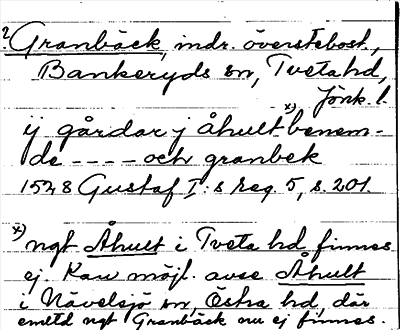 ? Granbäck, indr. överstebost.,
Bankeryds sn, Tveta hd,
Jönk. l.
ij gårdar j åhult *) benem-
de - - - - och granbek
1528 Gustaf I:s reg 5, s. 201.
*) ngt Åhult i Tveta hd finnes
ej. Kan möjl. avse Åhult
i Nävelsjö sn, Östra hd, där
emltd ngt Granbäck nu ej finnes.